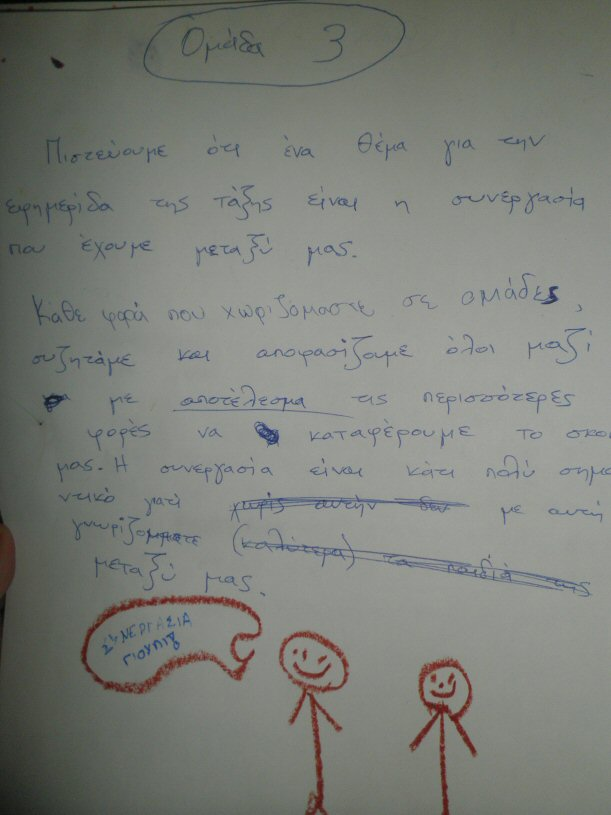 Ομάδα 3
Πιστεύουμε ότι ένα θέμα για την
εφημερίδα της τάξης είναι η συνεργασία
που έχουμε μεταξύ μας.
Κάθε φορά που χωριζόμαστε σε ομάδες,
συζητάμε και αποφασίζουμε όλοι μαζί
με αποτέλεσμα τις περισσότερες
φορές να καταφέρουμε το σκοπ
μας. Η συνεργασία είναι κάτι πολύ σημα
ντικό γιατί χωρίς αυτήν δεν με αυτή
γνωριζόμαστε (καλύτερα) τα παιδιά της
μεταξύ μας.
ΣΥΝΕΡΓΑΣΙΑ
ΓΙΟΥΠΙ